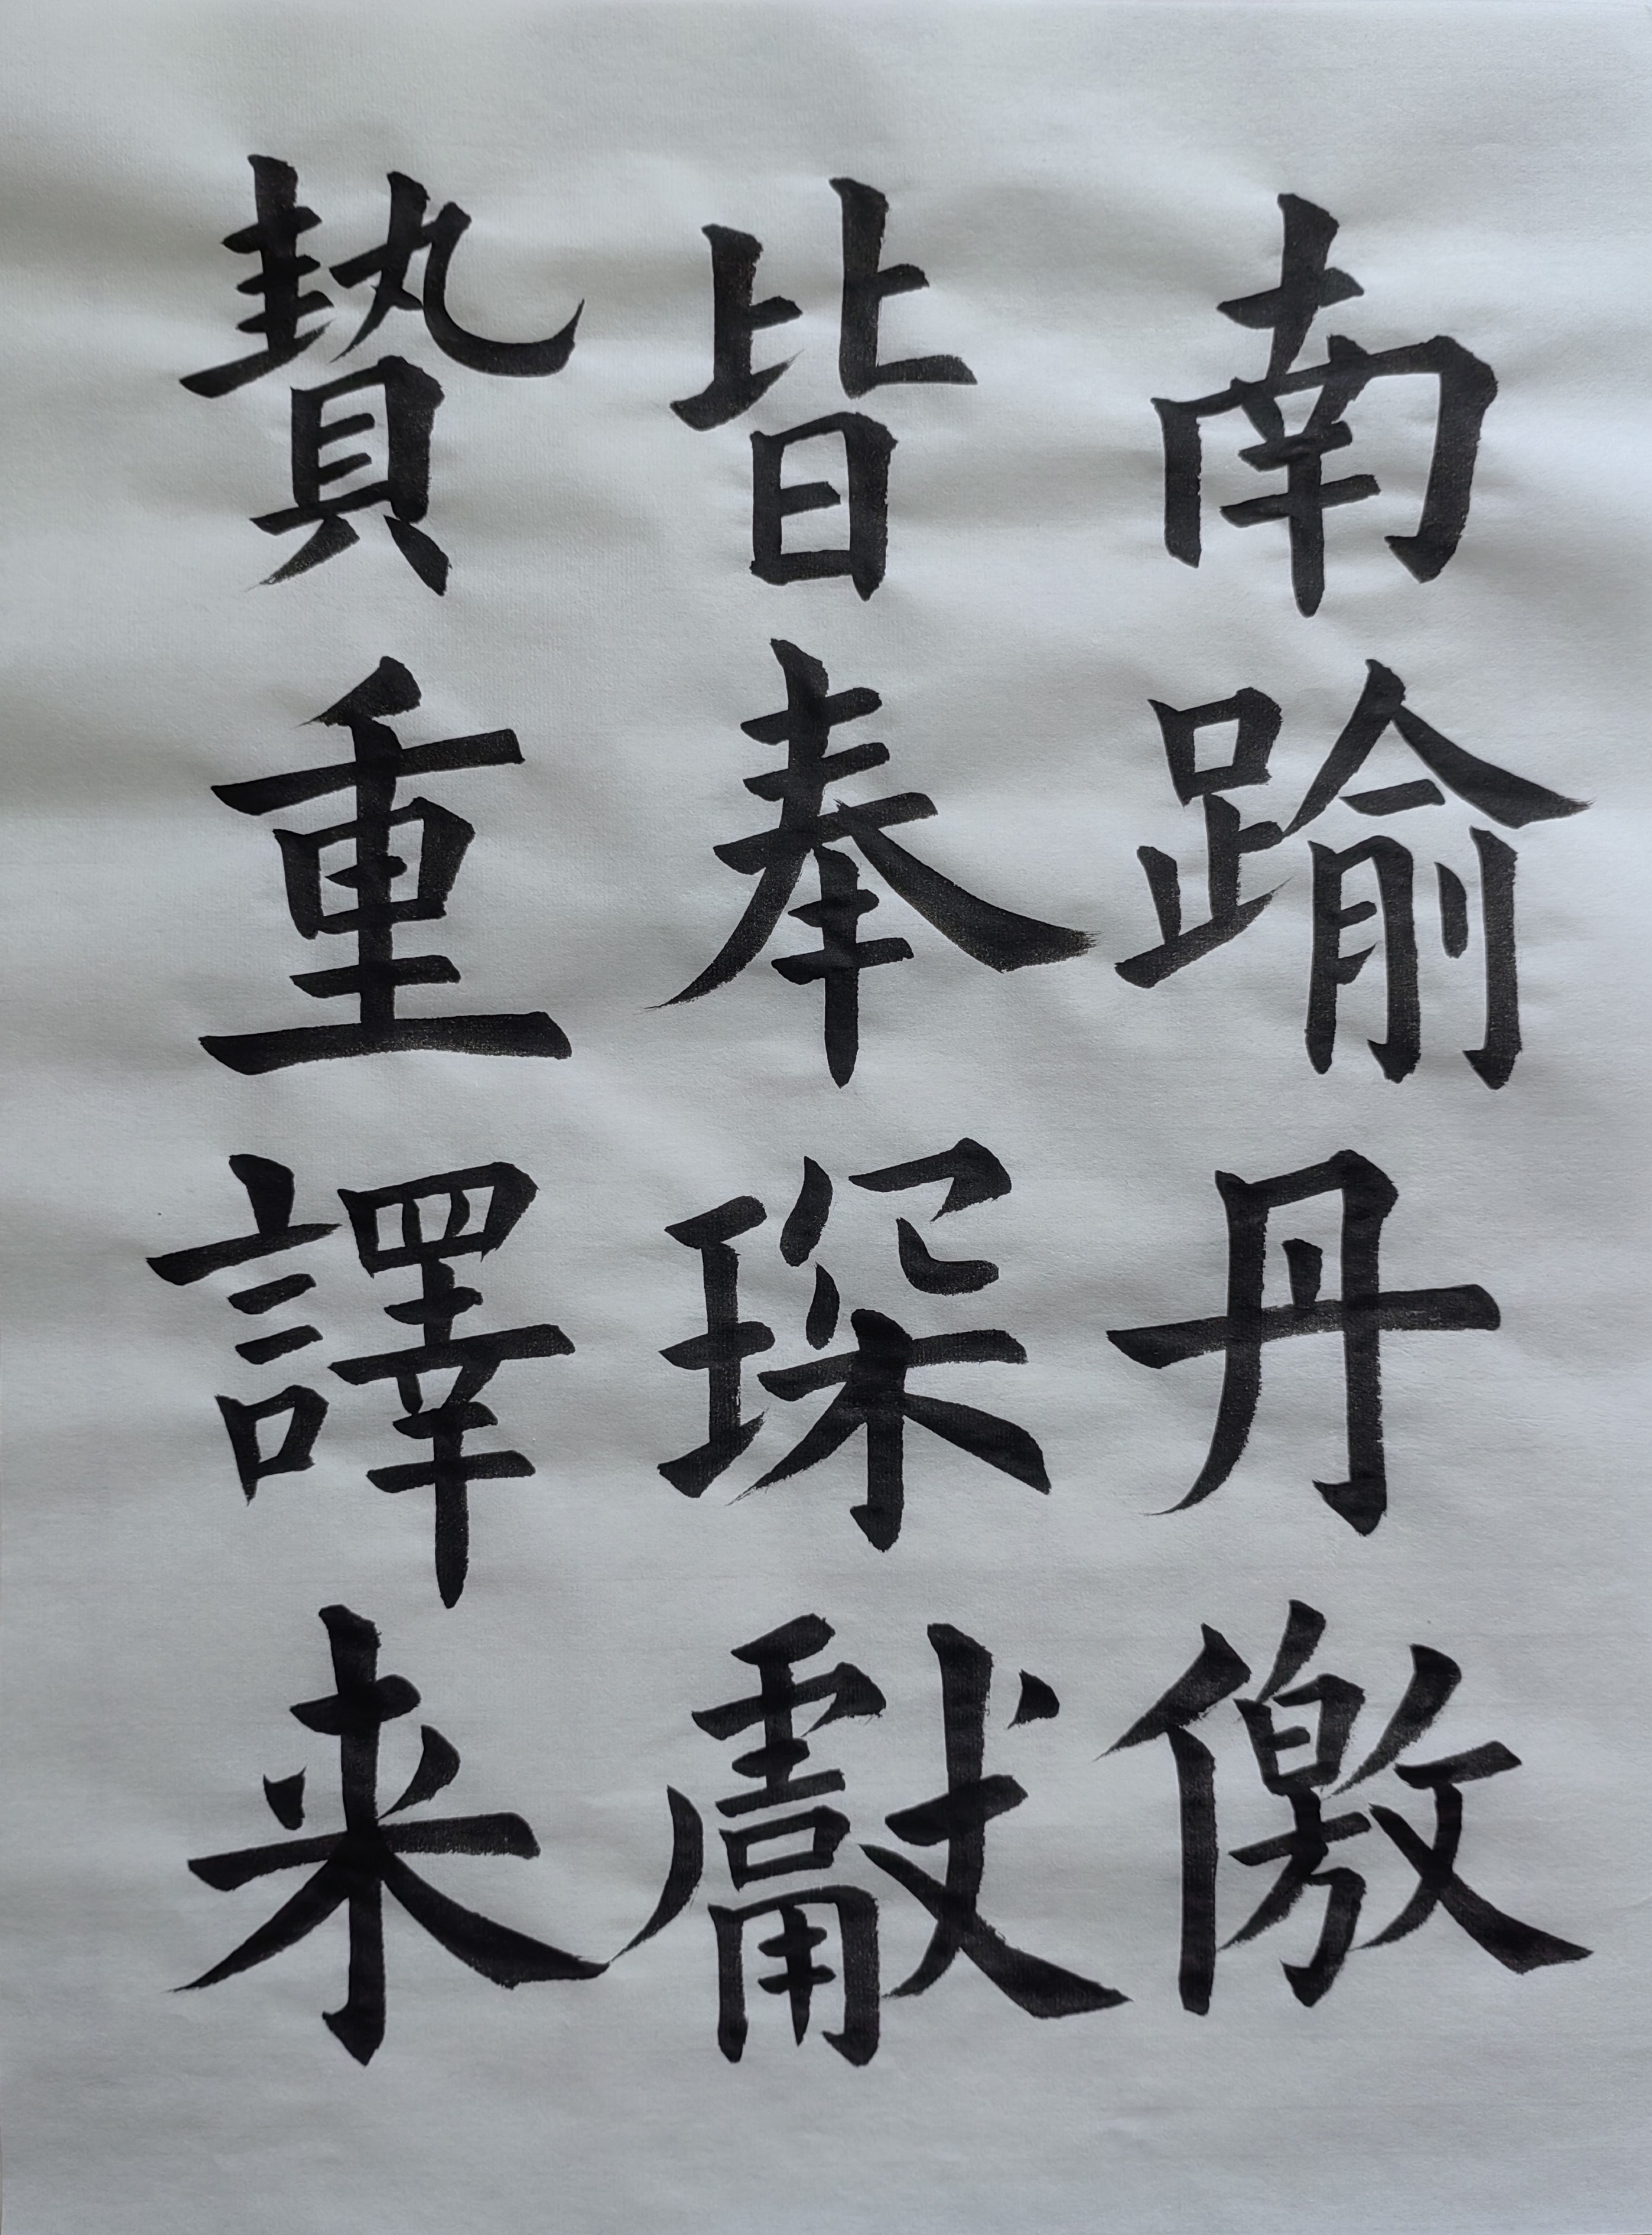 南踰丹儌
皆奉琛獻
贄重譯来